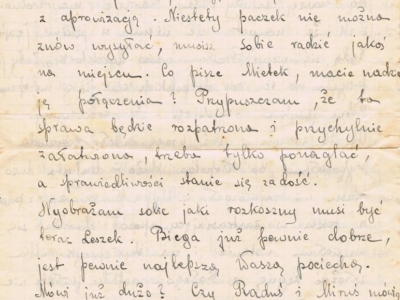 z aprowizacją. Niestety paczek nie można
znów wysyłać, musisz sobie radzić jakoś
na miejscu. Co pisze Mietek, macie nadzie
ję połączenia? Przypuszczam, że ta
sprawa będzie rozpatrzona i przychylnie
załatwiona, trzeba tylko ponaglać,
a sprawiedliwości stanie się zadość.
Wyobrażam sobie jaki rozkoszny musi być
teraz Leszek. Biega już pewnie dobrze,
jest pewnie najlepszą Waszą pociechą.
Mówi już dużo? Czy Raduś i Miruś mówią